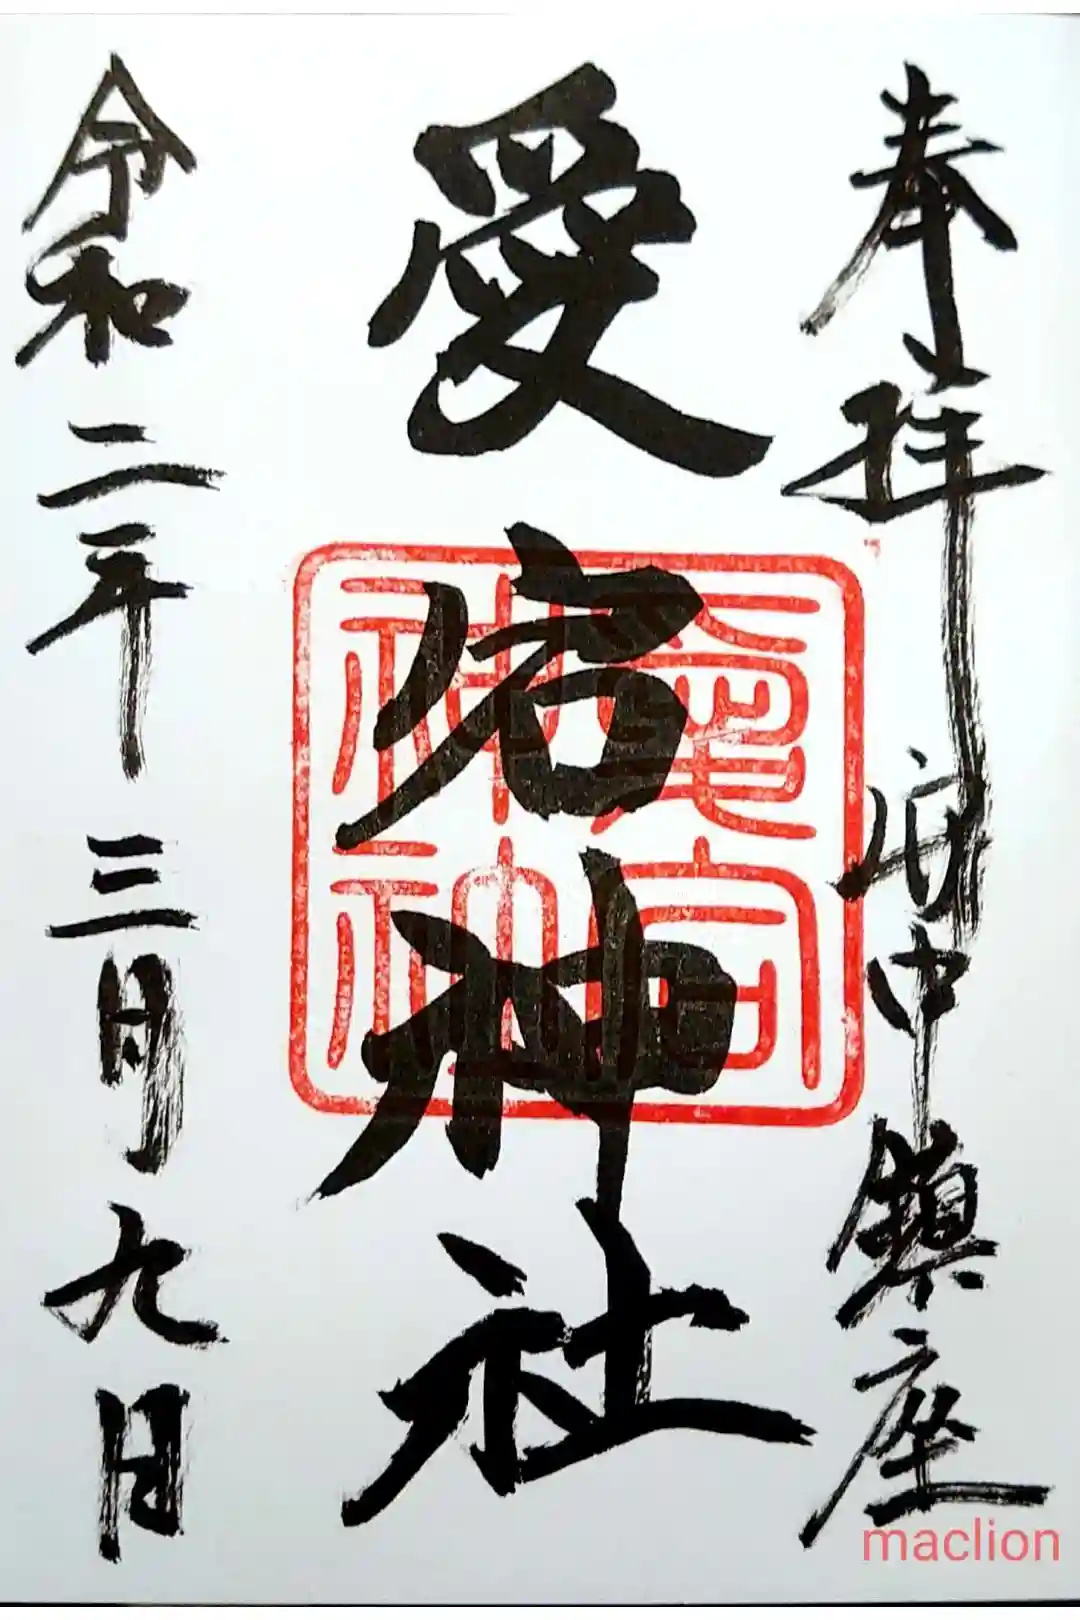 奉拝 府中鎮座
愛宕神社
令和二年三月九日
maclion